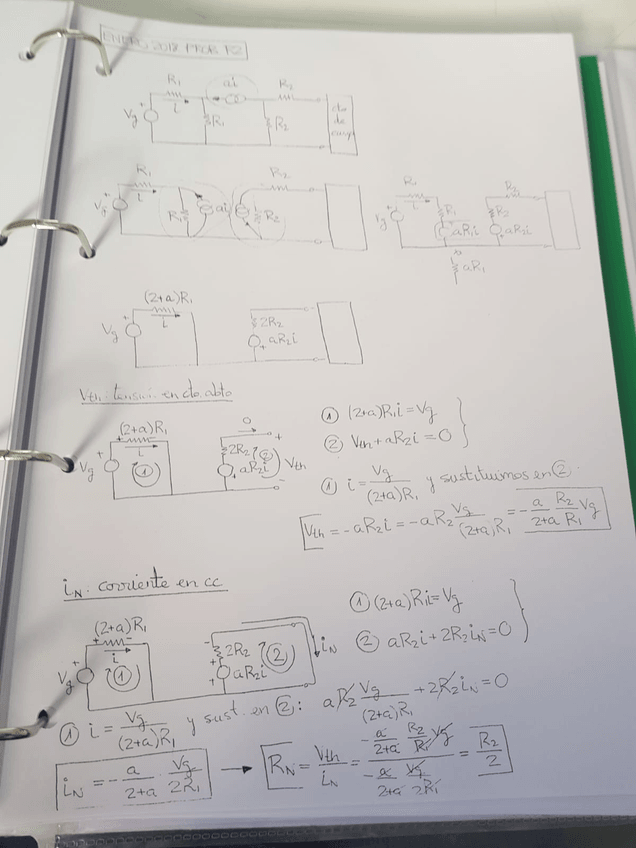 ENERO 2018 PROB. P2
R₁ ai R₂
Vg i R₁ R₂ cto de carga
R₁ R₂
Vg i R₁ ai R₂
R₁ R₂
Vg i R₁ aR₁i R₂ aR₂i
aR₁
(2+a)R₁
Vg i 2R₂ aR₂i
Vth: tensión en cto. abto
(2+a)R₁
Vg i ① 2R₂ aR₂i ② 0 Vth
① (2+a)R₁i = Vg
② Vth + aR₂i = 0
① i = Vg/(2+a)R₁ y sustituimos en ②
Vth = -aR₂i = -aR₂ Vg/(2+a)R₁ = -a/(2+a) R₂/R₁ Vg
iN: corriente en cc
(2+a)R₁
Vg i ① 2R₂ aR₂i ② iN
① (2+a)R₁i = Vg
② aR₂i + 2R₂iN = 0
① i = Vg/(2+a)R₁ y sust. en ②: aR₂ Vg/(2+a)R₁ + 2R₂iN = 0
iN = -a/(2+a) · Vg/2R₁ → RN = Vth/iN = (-a/(2+a) R₂/R₁ Vg)/(-a/(2+a) Vg/2R₁) = R₂/2